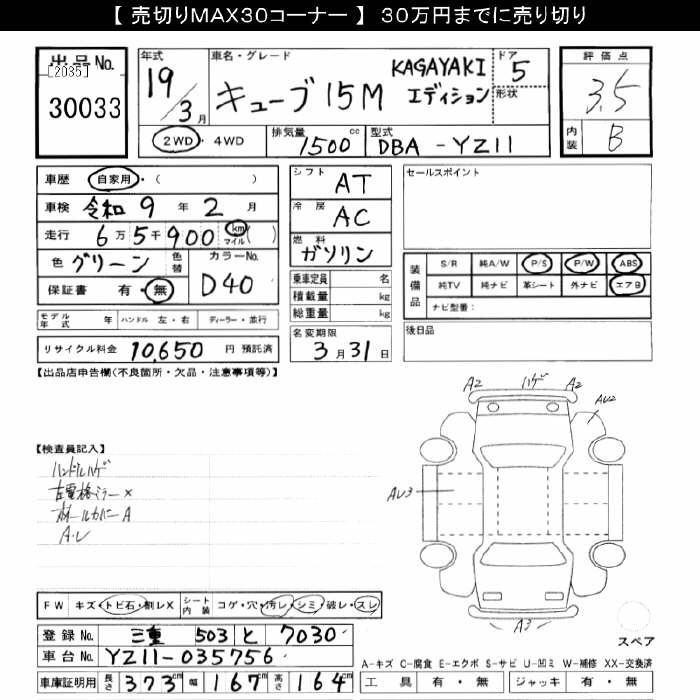 【 売切りMAX30コーナー 】 30万円までに売り切り
出品No.
[2035]
30033
年式 車名・グレード ドア 形状
19/3月 キューブ 15M KAGAYAKI エディション 5
評価点
3.5
内装 B
2WD・4WD 排気量 1500 cc 型式 DBA-YZ11
車歴 自家用・( )
車検 令和 9 年 2 月
走行 6万5千900 km マイル ( )
色 グリーン 色替 カラーNo. D40
保証書 有・無
シフト AT
冷房 AC
燃料 ガソリン
乗車定員 名
積載量 kg
総重量 kg
セールスポイント
装備品 S/R 純A/W P/S P/W ABS
純TV 純ナビ 革シート 外ナビ エアB
ナビ型番：
モデル年式 年 ハンドル 左・右 ディーラー・並行
名変期限
3月31日
後日品
リサイクル料金 10,650 円 預託済
【出品店申告欄(不良箇所・欠品・注意事項等)】
A2 ハゲ A2
AU2
AU3
A3
【検査員記入】
ハンドルハゲ
左電格ミラー×
ホールカバーA
A.U
FW キズ・トビ石・割レX シート内装 コゲ・穴・汚レ・シミ・破レ・スレ
登録No. 三重 503 と 7030
車台No. YZ11-035756
車庫証明用 長さ 373cm 幅 167cm 高さ 164cm
スペア
A-キズ C-腐食 E-エクボ S-サビ U-凹ミ W-補修 XX-交換済
工具 有・無 ジャッキ 有・無